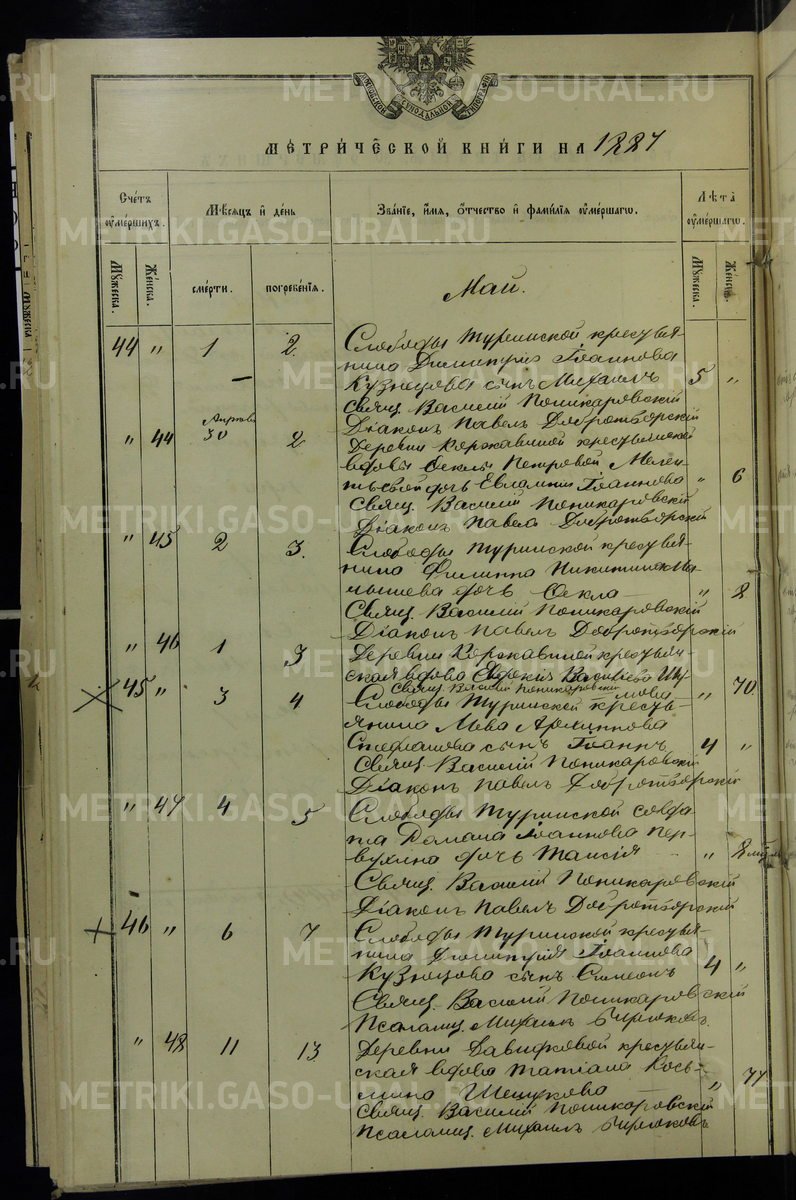 МЕТРИЧЕСКОЙ КНИГИ НА 1887
Счетъ умершихъ.
Мѣсяцъ и день
Званіе, имя, отчество и фамилія умершагω.
Лѣта умершагω.
Мужеска.
Женска.
смерти.
погребенія.
Мужеска.
Женска.
Май.
44 " 1 2 Слободы Туринской крестья-
нина Димитрія Іоаннова
Кузнецова сынъ Михаилъ 5 "
Свящ. Василій Поникаровскій
Діаконъ Павелъ Добротворскій
" 44 Апрѣля 30 2 Деревни Коржавиной крестьянской
вдовы Феклы Петровой Мелен-
тьевой дочь Евлампія Іоаннова " 6
Свящ. Василій Поникаровскій
Діаконъ Павелъ Добротворскій
" 45 2 3. Слободы Туринской крестья-
нина Филиппа Никитина Ма-
лышева дочь Фекла " 2
Свящ. Василій Поникаровскій
Діаконъ Павелъ Добротворскій
" 46 1 3 Деревни Коржавиной крестьян-
ская вдова Евдокія Васильева Шу-
мова " 70
Свящ. Василій Поникаровскій
45 " 3 4 Слободы Туринской кресть-
янина Льва Архиппова
Стефанова сынъ Іоаннъ 4 "
Свящ. Василій Поникаровскій
Діаконъ Павелъ Добротворскій
" 47 4 5 Слободы Туринской солда-
та Романа Іоаннова Пер-
вухина дочь Таисія " 2
Свящ. Василій Поникаровскій
Діаконъ Павелъ Добротворскій
46 " 6 7 Слободы Туринской крестья-
нина Димитрія Іоаннова
Кузнецова сынъ Симеонъ 4 "
Свящ. Василій Поникаровскій
Псаломщ. Михаилъ Бирюковъ.
" 48 11 13 Деревни Давыдковой крестьян-
ская вдова Татіана Кось-
мина Шешукова " 77
Свящ. Василій Поникаровскій
Псаломщ. Михаилъ Бирюковъ
METRIKI.GASO-URAL.RU